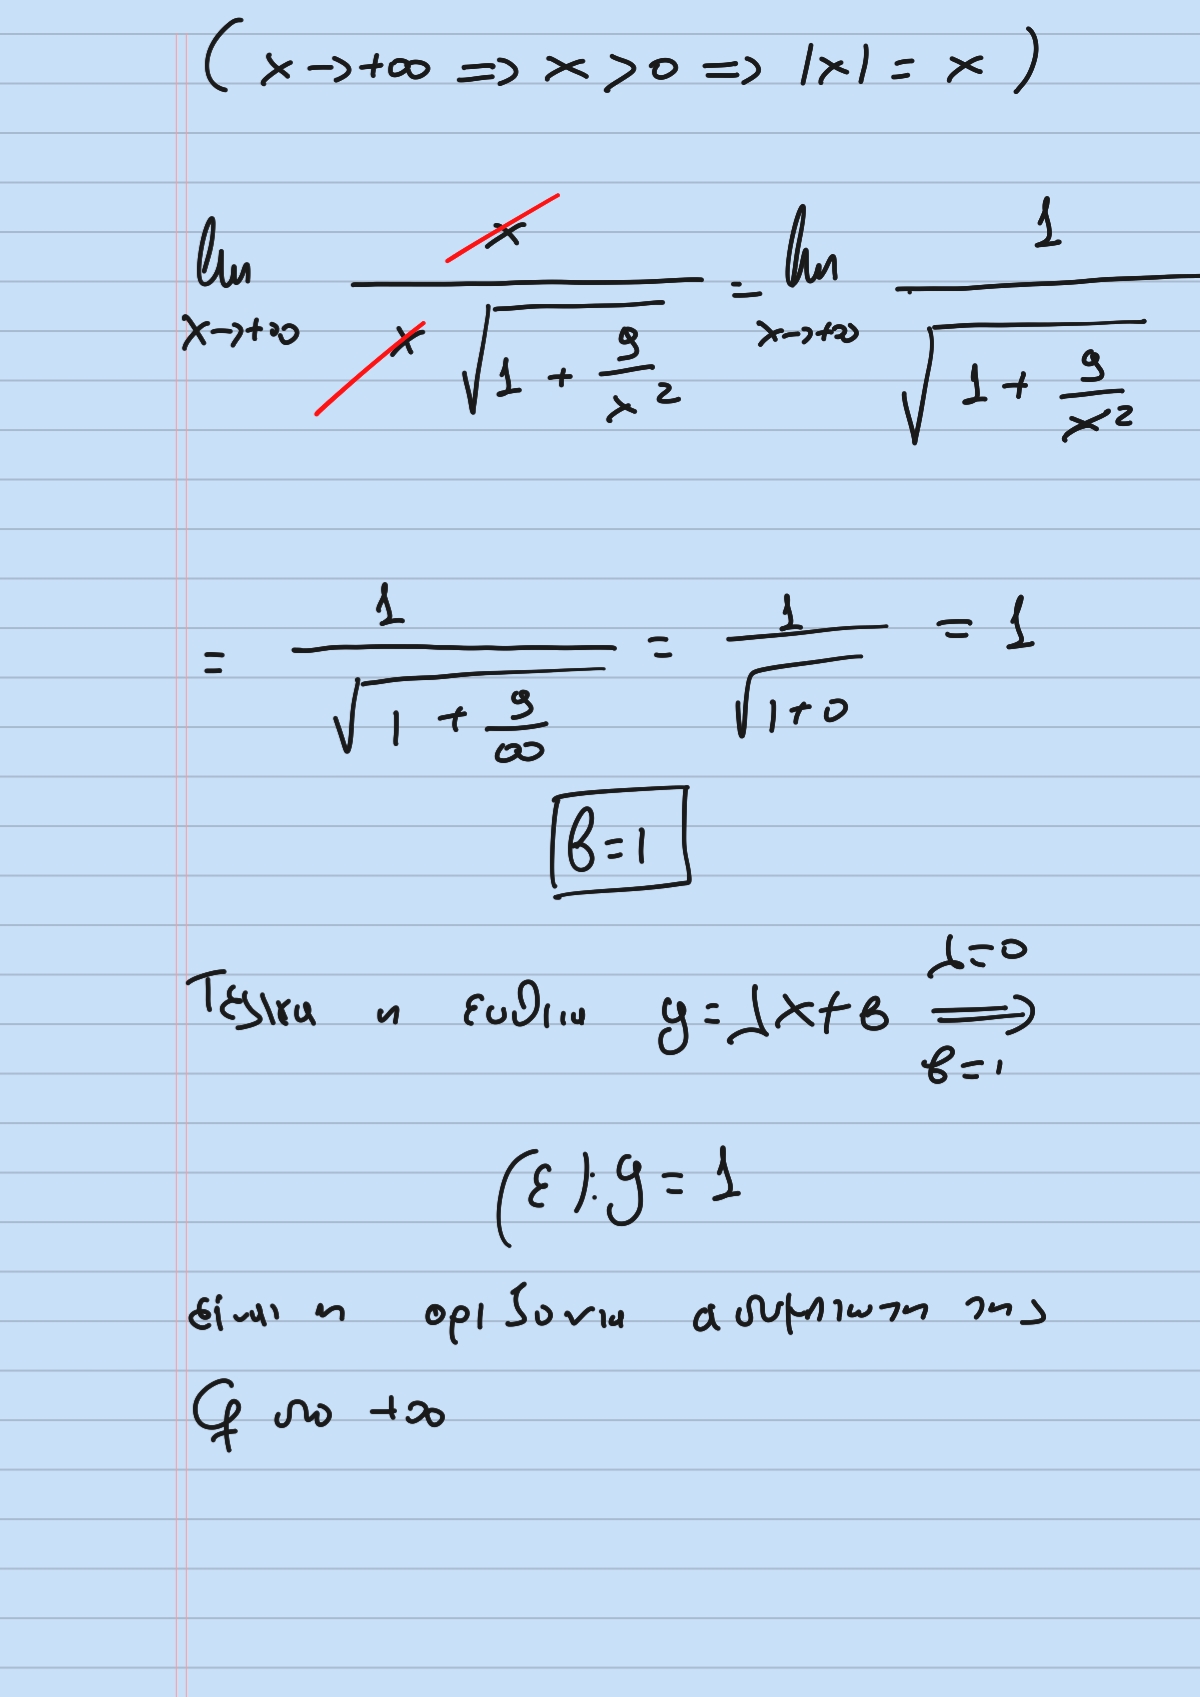 ( x → +∞ ⇒ x > 0 ⇒ |x| = x )
lim x→+∞ x / (x √(1 + 9/x²)) = lim x→+∞ 1 / √(1 + 9/x²)
= 1 / √(1 + 9/∞) = 1 / √(1+0) = 1
β=1
Τελικα η ευθεια y=λx+β λ=0 ⇒ β=1
(ε): y = 1
είναι η οριζοντια ασυμπτωτη της
Cf στο +∞